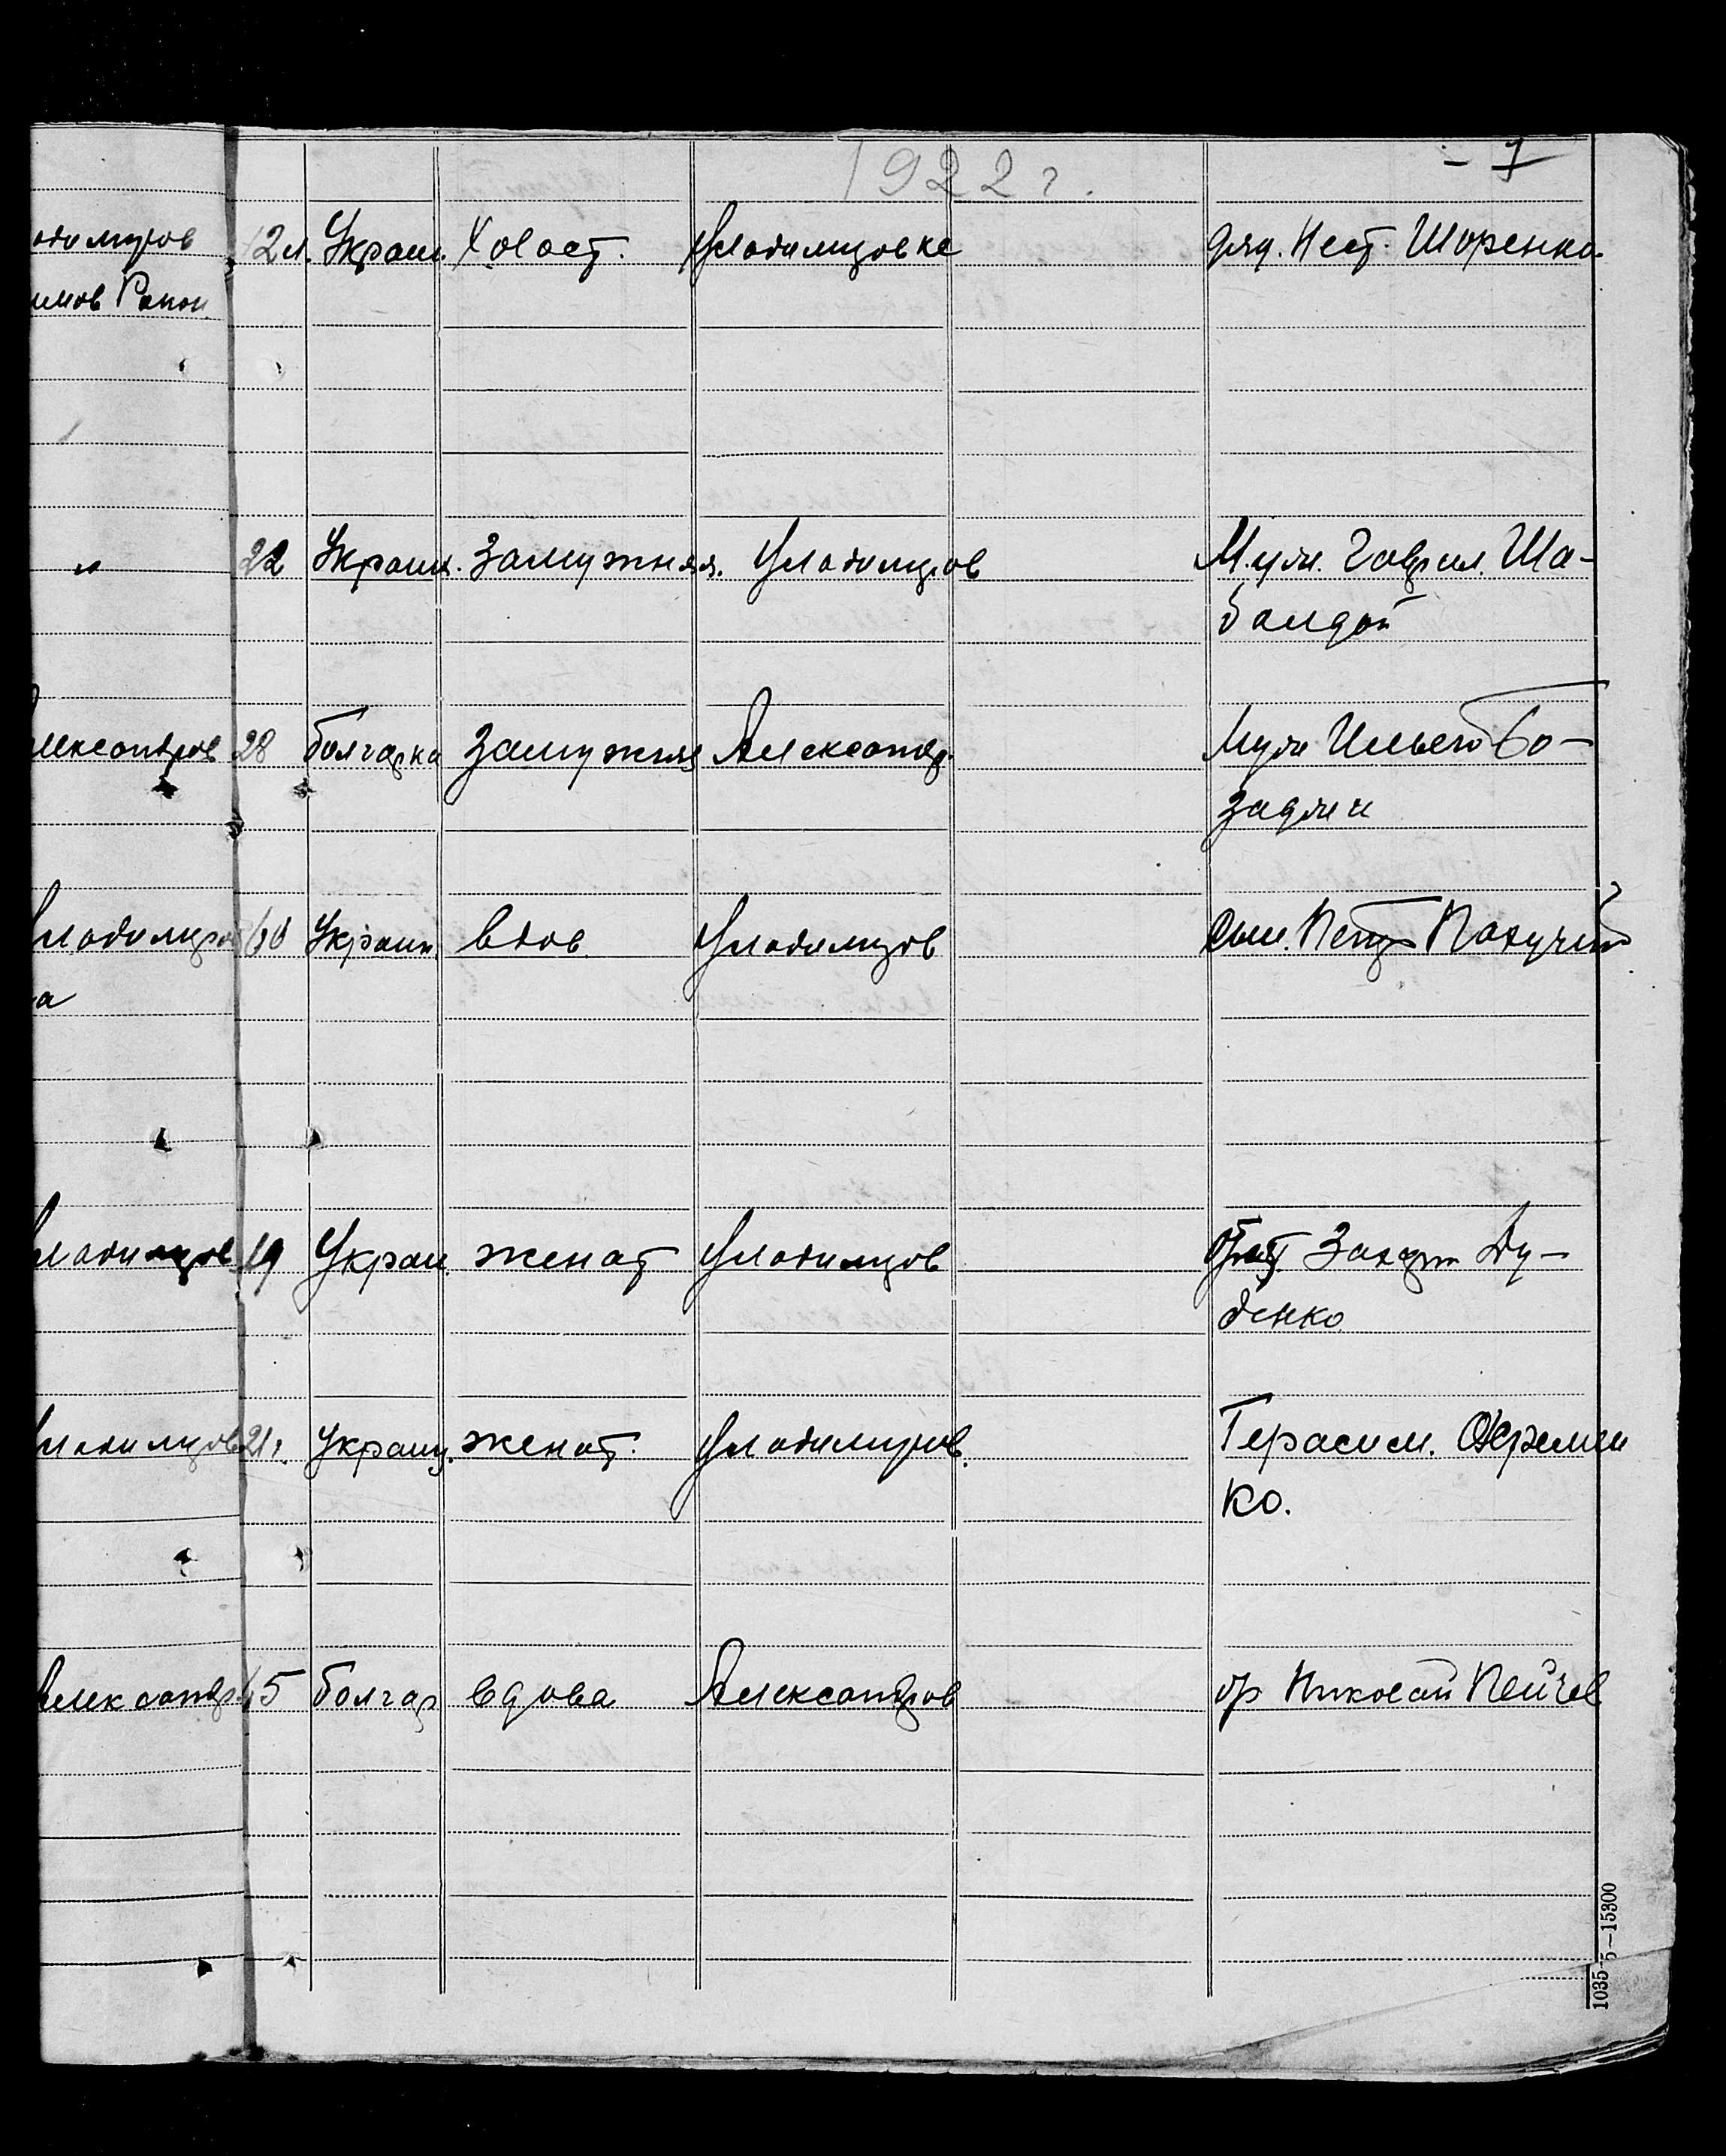 1922 г.
одимиров 12 л. Украин. Холост. Владимировке дяд. Нест. Шоренко.
22 Украин. замужняя. Владимиров Муж. Гаврил. Ша-
балдой
лександров 28 болгарка замужня Александр. Муж
заджи
Владимиров 60 Украин. вдов. Владимиров Сын. Петр
а
Владимиров 19 Украи. женат Владимиров брат. Захар Ду-
денко
Владимиров 21 г. Украин. женат. Владимиров. Герасим.
ко.
Александр. 45 болгар вдова Александров бр Николай Пейчев
1035-5-15300